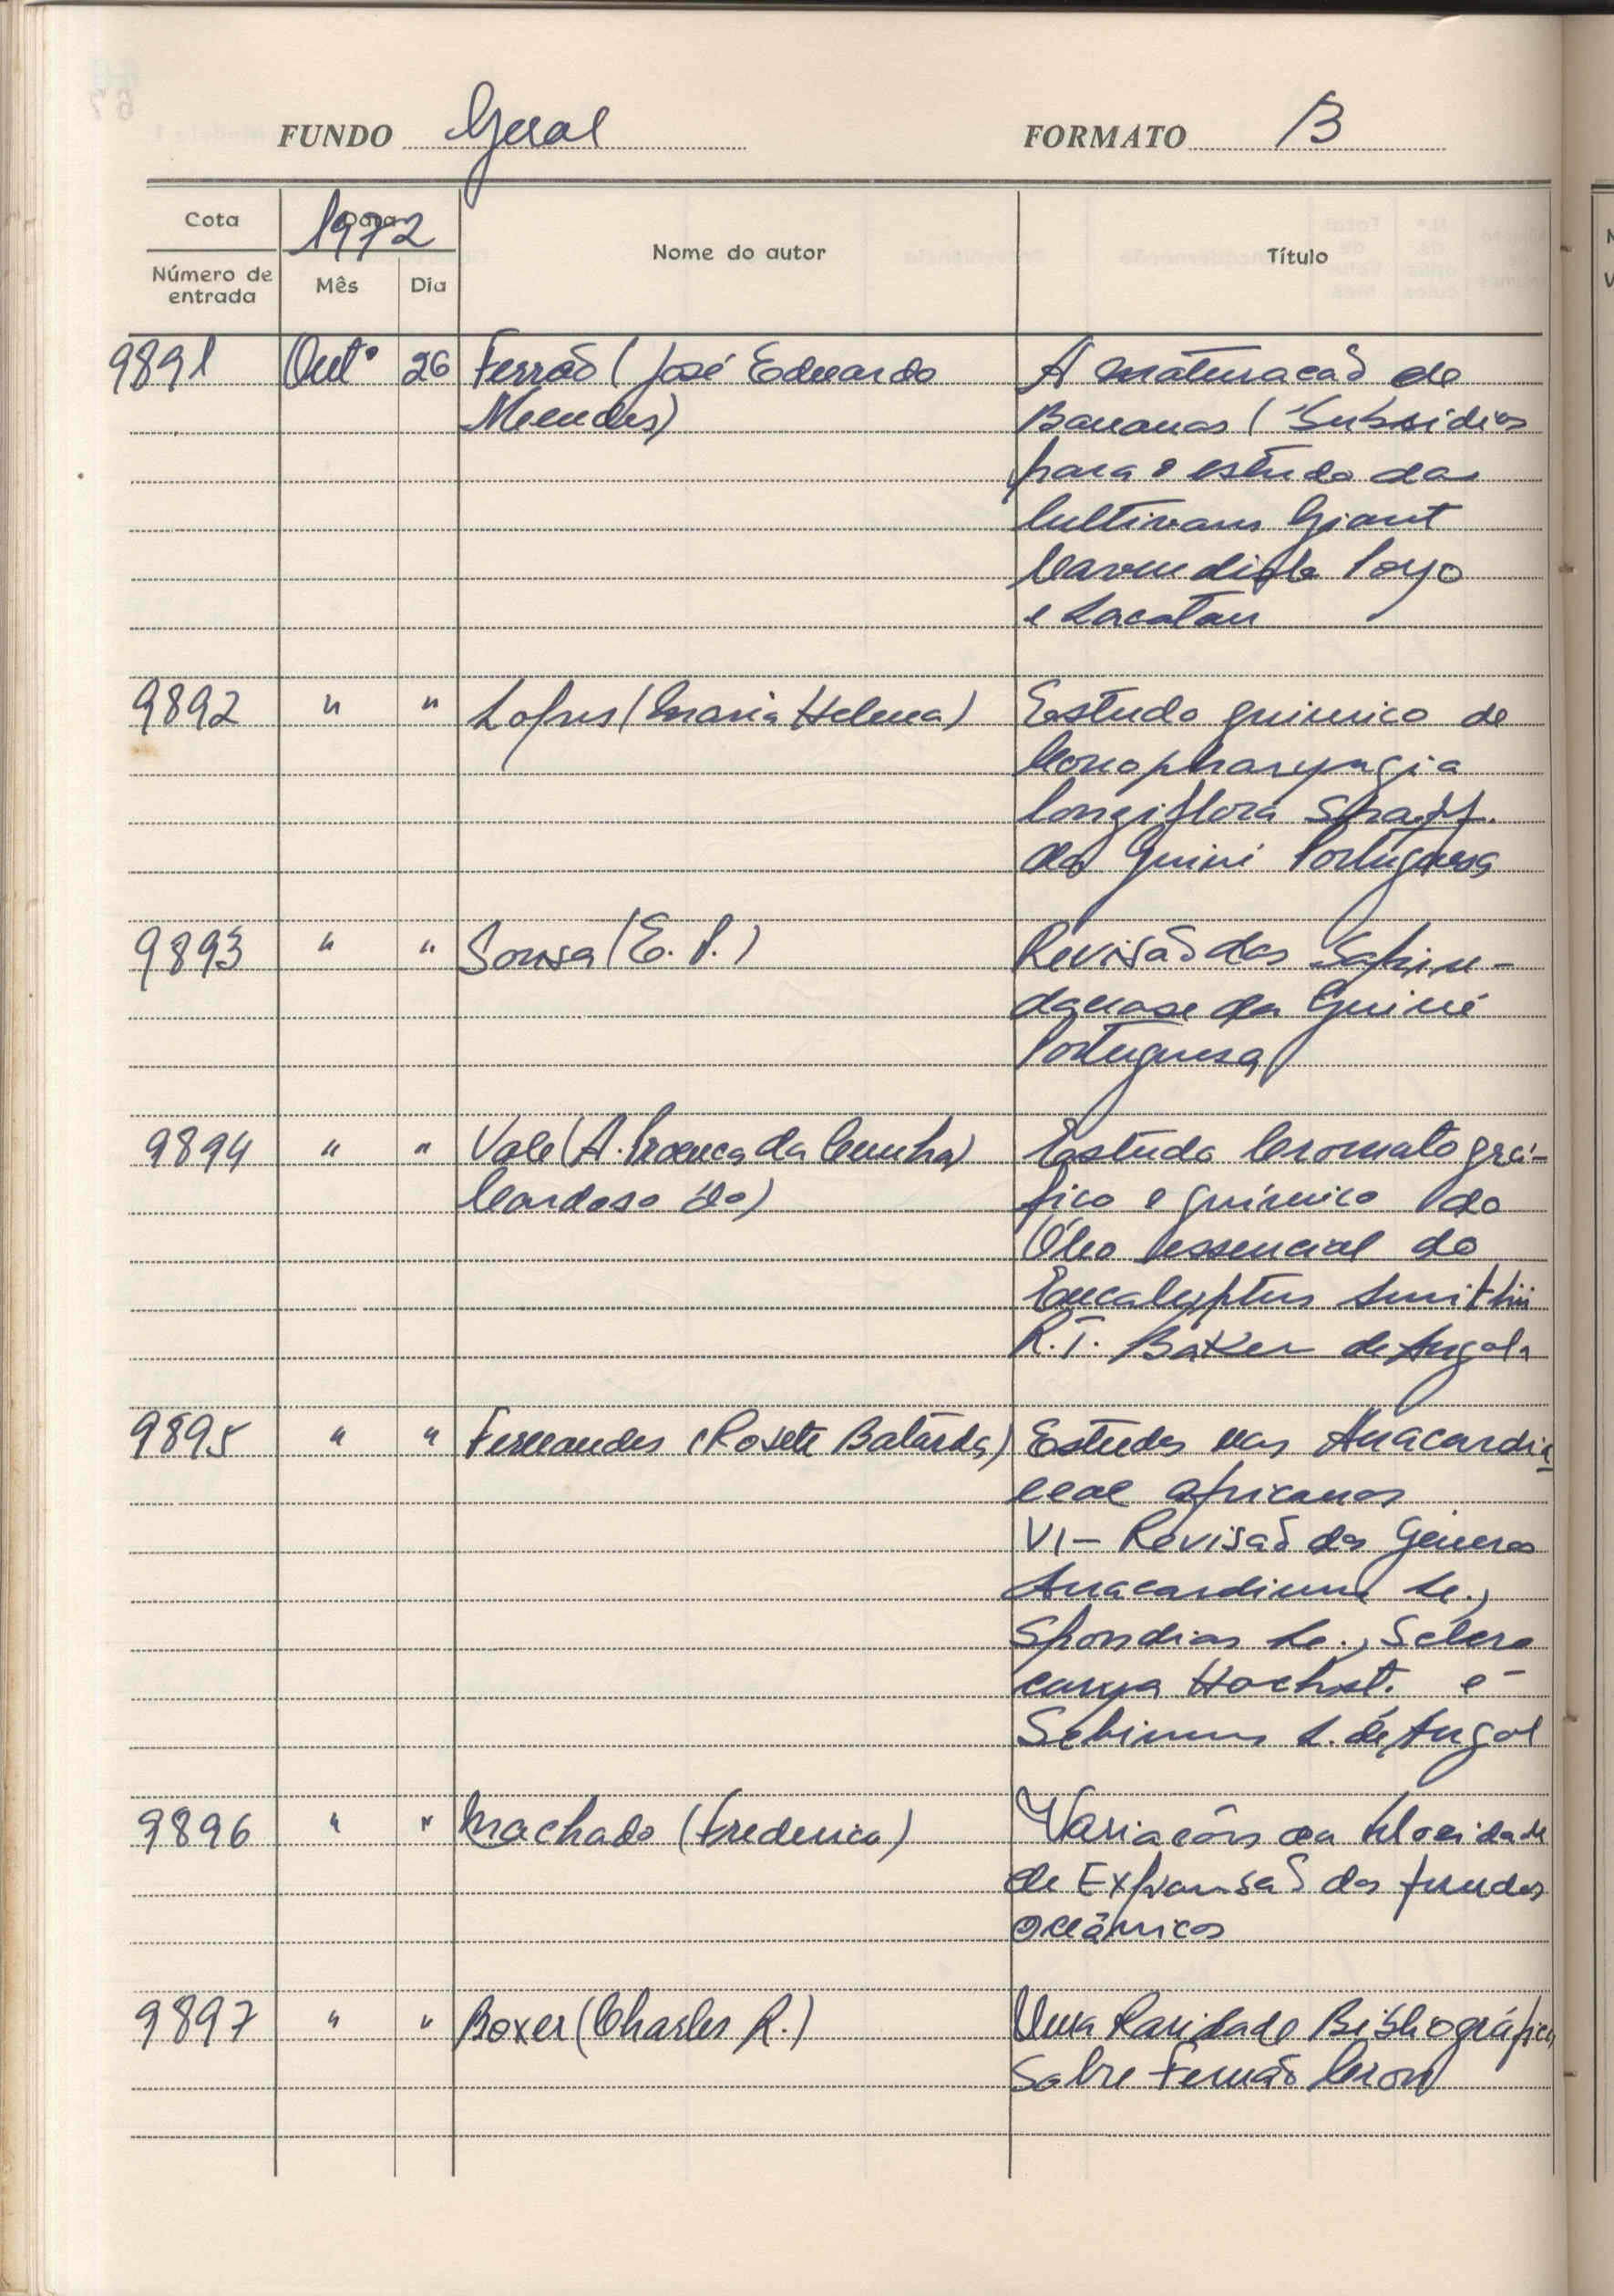 FUNDO Geral FORMATO B
Cota Data 1972 Nome do autor Título
Número de entrada Mês Dia
9891 Outº 26 Ferrão (José Eduardo A maturacaõ de
Mendes) Bananas (Subsidios
para o estudo da
Cultivars Giant
Cavendish Poyo
e Lacatan
9892 " " Lopes (Maria Helena) Estudo quimico de
Conopharyngia
longiflora Stapf.
da Guiné Portuguesa
9893 " " Sousa (E. P.) Revisão das Sapin-
daceae da Guiné
Portuguesa
9894 " " Vale (A. Proença da Cunha) Estudo Cromatográ-
Cardoso do) fico e químico do
Óleo essencial do
Eucalyptus Smithii
R.T. Baker de Angola
9895 " " Fernandes (Rosete Batarda) Estudos nas Anacardia-
ceae africanas
VI - Revisaõ dos Géneros
Anacardium L.,
Spondias L., Sclero
carya Hochst. e
Schinus L. de Angol
9896 " " Machado (Frederico) Variacões da Velocidade
de Expansaõ dos fundos
Oceânicos
9897 " " Boxer (Charles R.) Uma Raridade Bibliográfica
Sobre Fernão Cron